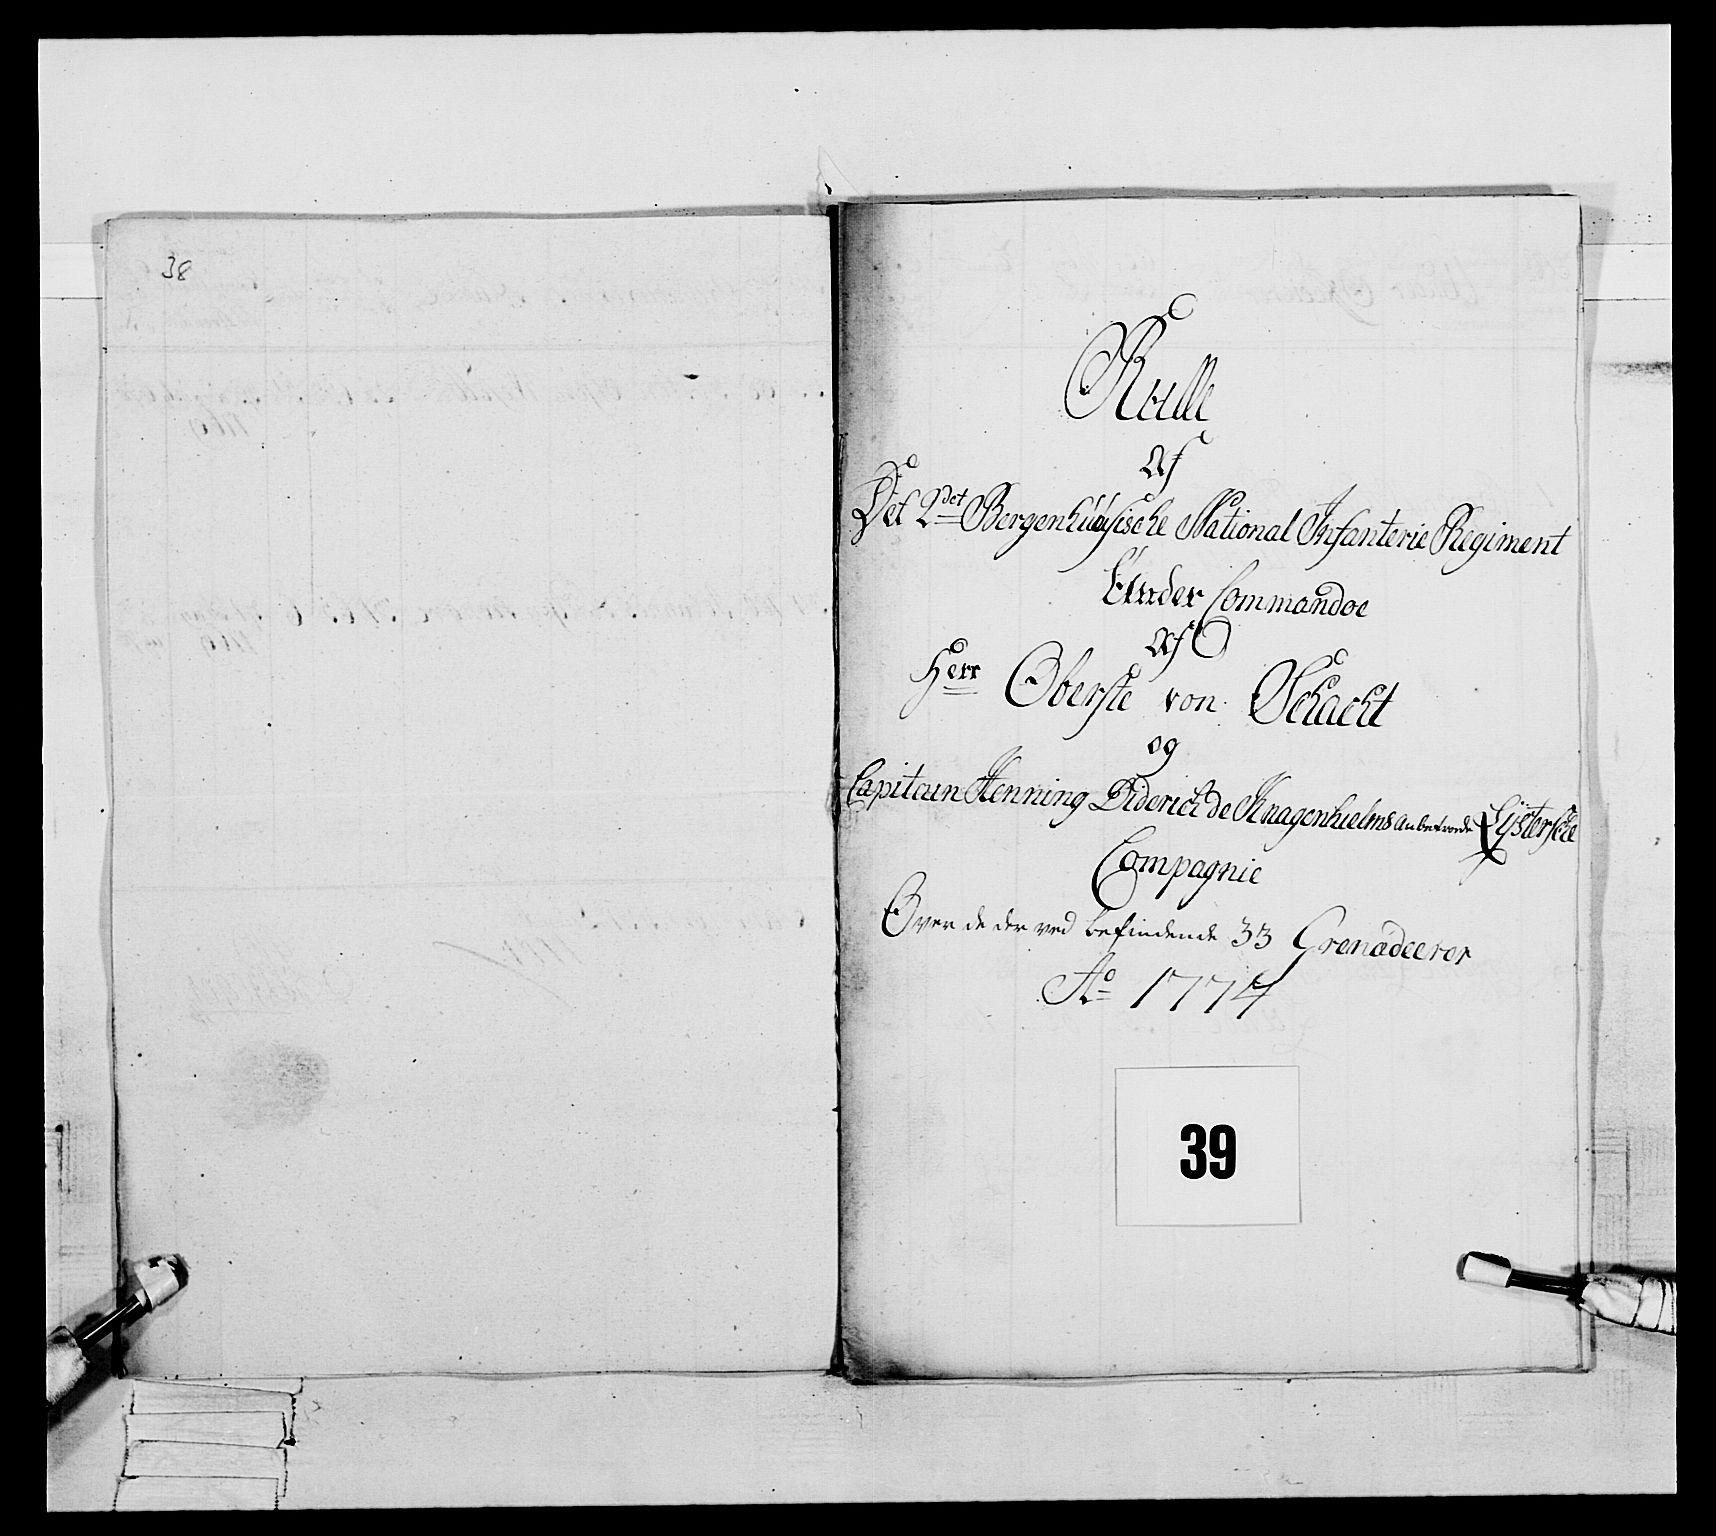 38
Rulle
Af
Det 2det Bergenhuusische National Infanterie Regiment
Under Commandoe
Af
Herr Oberste von Schacht
og
Capitain Henning Diderich de Knagenhielms anbetroede Lÿsterske
Compagnie
Over de der ved befindende 33 Grenadeerer
Ao 1774
39